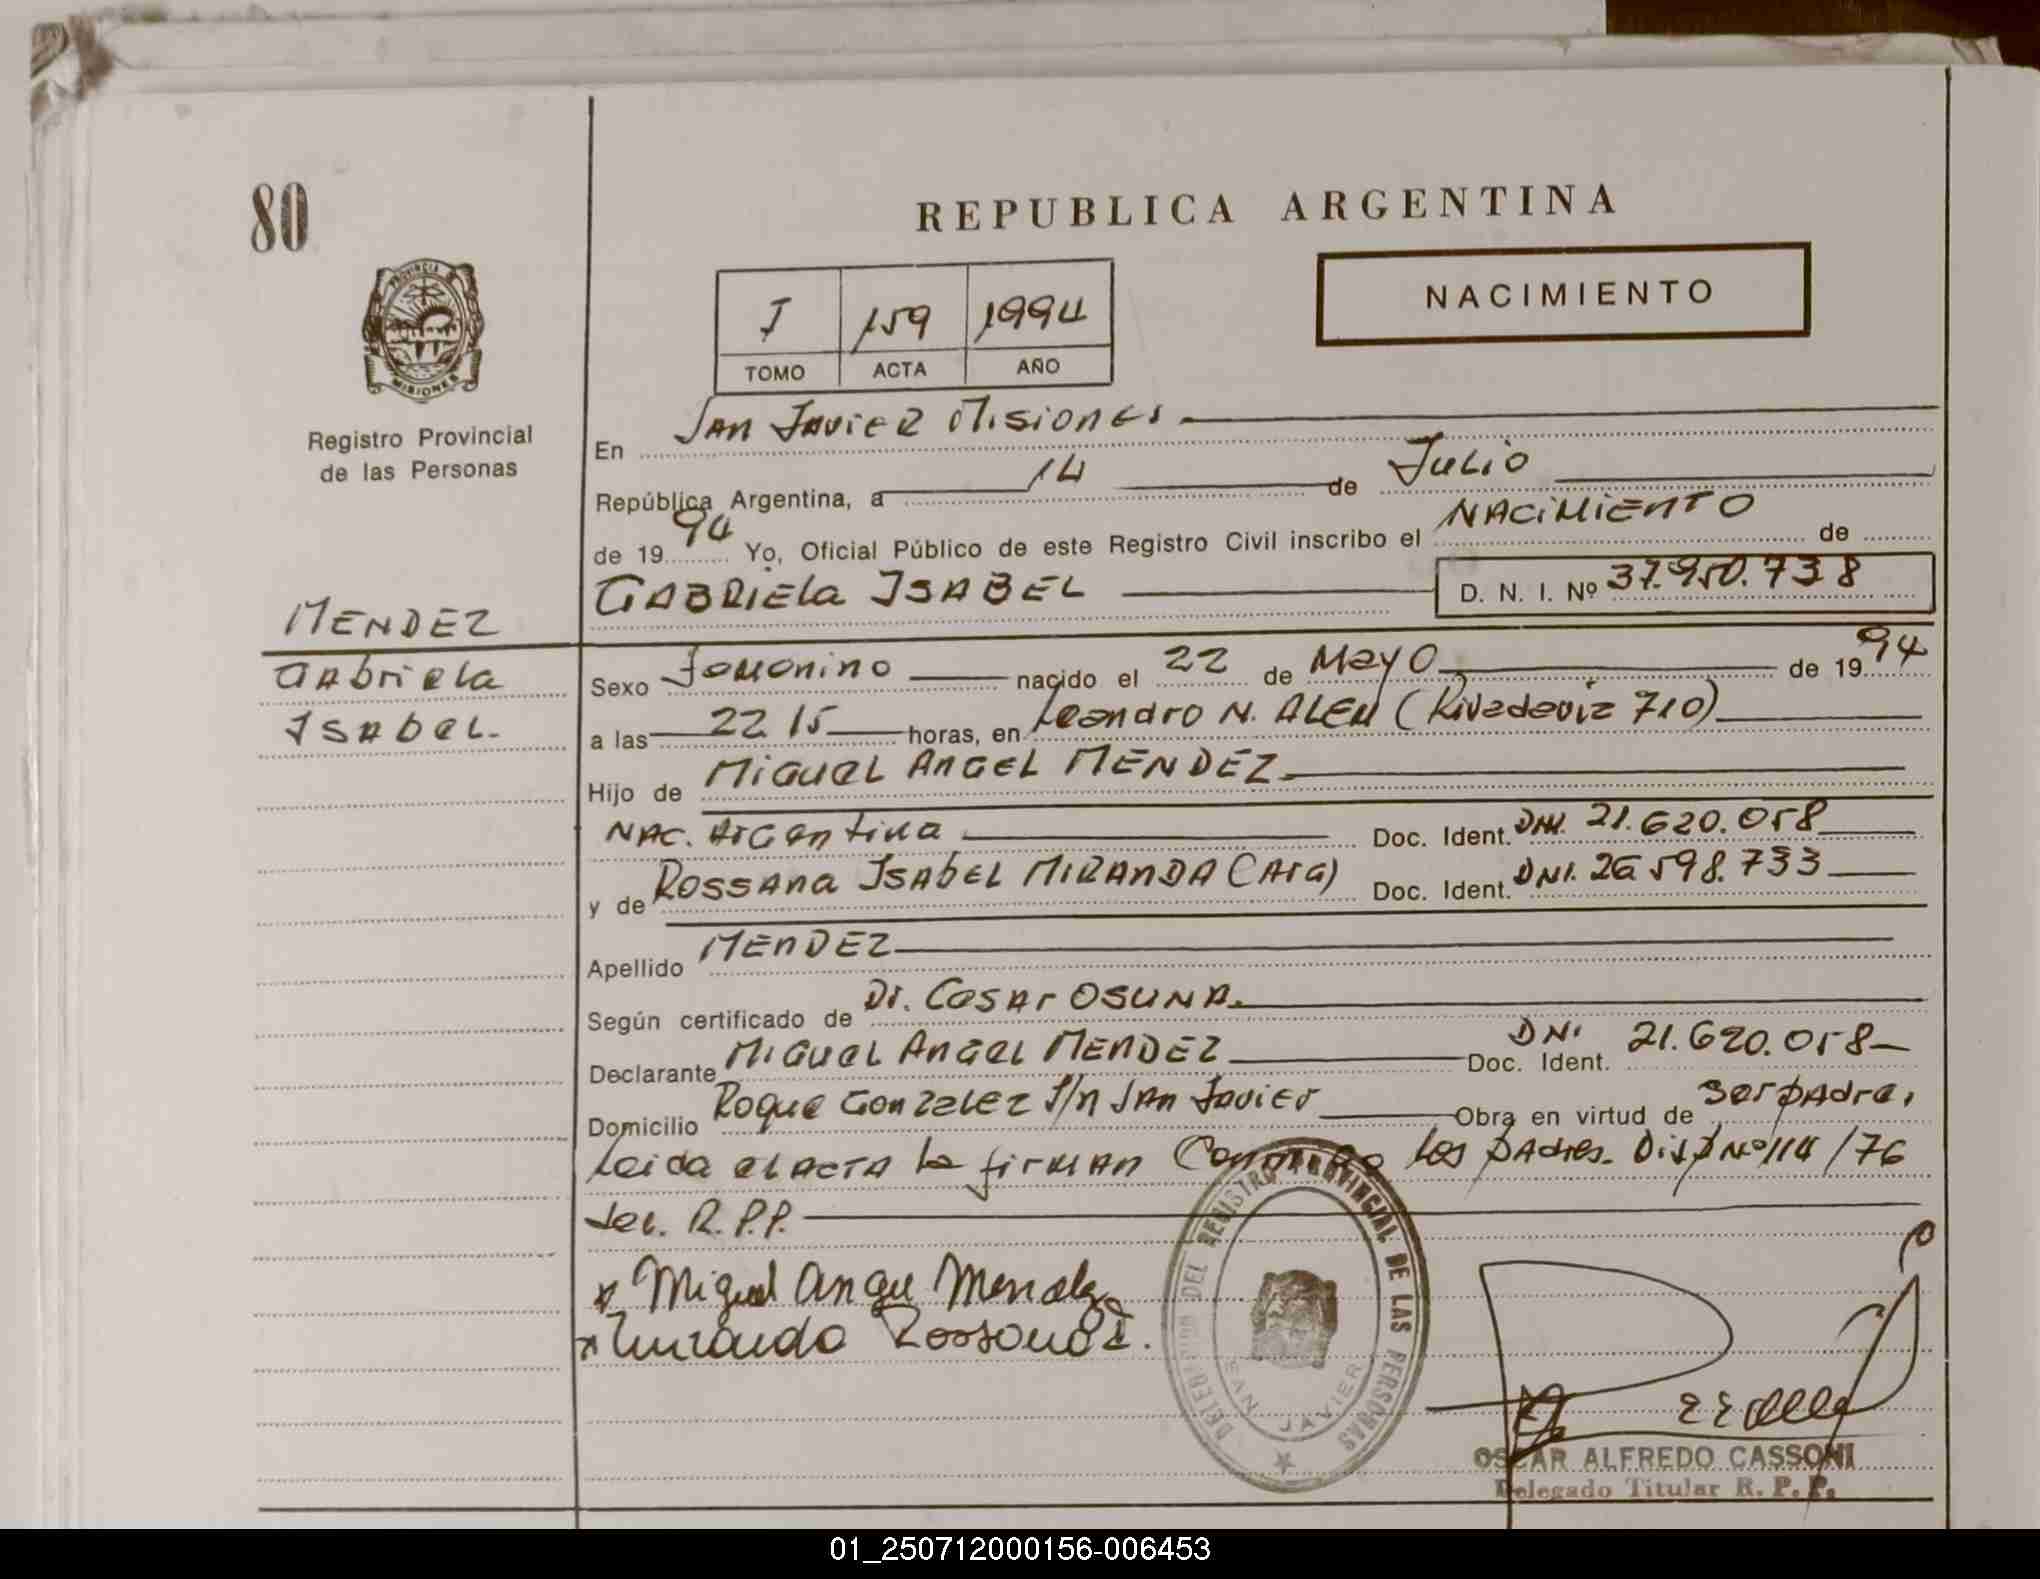 80
REPUBLICA ARGENTINA
NACIMIENTO
I 159 1994
TOMO ACTA AÑO
PROVINCIA DE
MISIONES
Registro Provincial
de las Personas
En San Javier Misiones
República Argentina, a 14 de Julio
de 19 94 Yo, Oficial Público de este Registro Civil inscribo el NACIMIENTO de
GABRIELA ISABEL D. N. I. Nº 37.950.738
MENDEZ
Gabriela
Isabel.
Sexo Femenino nacido el 22 de Mayo de 19 94
a las 22 15 horas, en Leandro N. ALEM (Rivadavia 710)
Hijo de MIGUEL ANGEL MENDEZ
NAC. Argentina Doc. Ident. DNI. 21.620.058
y de Rossana Isabel MIRANDA (Arg) Doc. Ident. DNI. 26 598.733
Apellido MENDEZ
Según certificado de Dr. Cesar OSUNA.
Declarante MIGUEL ANGEL MENDEZ Doc. Ident. DNI 21.620.058
Domicilio Roque Gonzalez S/n San Javier Obra en virtud de ser padre,
Leida el acta la firman los padres. Disp Nº 114/76
R.P.P.
x Miguel Angel Mendez
x Miranda Rossana I.
DELEGACION DEL REGISTRO PROVINCIAL DE LAS PERSONAS
SAN JAVIER
OSCAR ALFREDO CASSONI
Delegado Titular R. P. P.
01_250712000156-006453